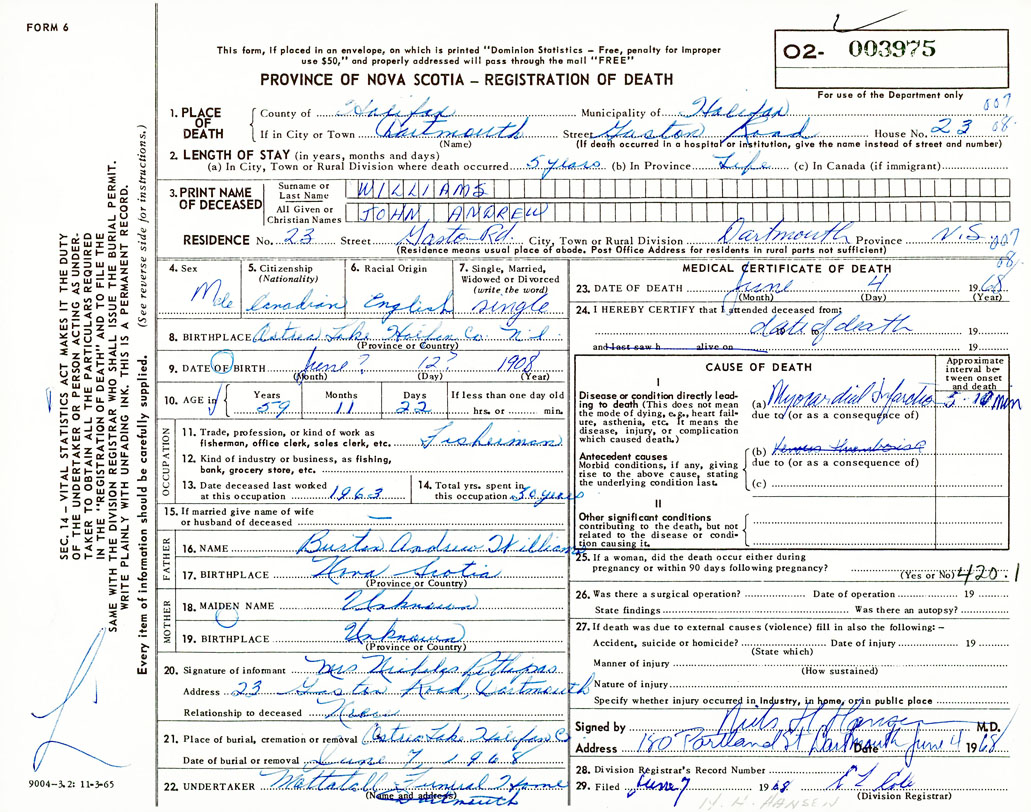 FORM 6
This form, if placed in an envelope, on which is printed "Dominion Statistics – Free, penalty for improper
use $50," and properly addressed will pass through the mail "FREE"
PROVINCE OF NOVA SCOTIA – REGISTRATION OF DEATH
02- 003975
For use of the Department only
007
08.
1. PLACE OF DEATH
County of Halifax Municipality of Halifax
If in City or Town Dartmouth Street Gaston Road House No. 23
(Name) (If death occurred in a hospital or institution, give the name instead of street and number)
2. LENGTH OF STAY (in years, months and days)
(a) In City, Town or Rural Division where death occurred 5 years (b) In Province Life (c) In Canada (if immigrant)
3. PRINT NAME OF DECEASED
Surname or Last Name WILLIAMS
All Given or Christian Names JOHN ANDREW
RESIDENCE No. 23 Street Gaston Rd. City, Town or Rural Division Dartmouth Province N.S.
(Residence means usual place of abode. Post Office Address for residents in rural parts not sufficient)
007
08.
4. Sex Male
5. Citizenship (Nationality) Canadian
6. Racial Origin English
7. Single, Married, Widowed or Divorced (write the word) single
8. BIRTHPLACE Ostrea Lake Halifax Co. N.S
(Province or Country)
9. DATE OF BIRTH June ? 12? 1908
(Month) (Day) (Year)
10. AGE in Years 59 Months 11 Days 22 If less than one day old hrs. or min.
OCCUPATION
11. Trade, profession, or kind of work as
fisherman, office clerk, sales clerk, etc. Fisherman
12. Kind of industry or business, as fishing,
bank, grocery store, etc.
13. Date deceased last worked
at this occupation 1963
14. Total yrs. spent in
this occupation 30 years
15. If married give name of wife
or husband of deceased —
FATHER
16. NAME Burton Andrew Williams
17. BIRTHPLACE Nova Scotia
(Province or Country)
MOTHER
18. MAIDEN NAME Unknown
19. BIRTHPLACE Unknown
(Province or Country)
20. Signature of informant Mrs Nicholas Pettipas
Address 23 Gaston Road Dartmouth
Relationship to deceased Niece
21. Place of burial, cremation or removal Ostrea Lake Halifax Co
Date of burial or removal June 7, 1968
22. UNDERTAKER Mattatall Funeral Home
(Name and address) Dartmouth
MEDICAL CERTIFICATE OF DEATH
23. DATE OF DEATH June 4 1968
(Month) (Day) (Year)
24. I HEREBY CERTIFY that I attended deceased from:
date of death 19
and last saw h alive on 19
CAUSE OF DEATH
Approximate interval between onset and death
I
Disease or condition directly leading
to death (This does not mean
the mode of dying, e.g., heart failure,
asthenia, etc. It means the
disease, injury, or complication
which caused death.)
(a) Myocardial Infarction 5-10 min
due to (or as a consequence of)
Antecedent causes
Morbid conditions, if any, giving
rise to the above cause, stating
the underlying condition last.
(b)
due to (or as a consequence of)
(c)
II
Other significant conditions
contributing to the death, but not
related to the disease or condition
causing it.
25. If a woman, did the death occur either during
pregnancy or within 90 days following pregnancy?
(Yes or No) 420.1
26. Was there a surgical operation? Date of operation 19
State findings Was there an autopsy?
27. If death was due to external causes (violence) fill in also the following: –
Accident, suicide or homicide? Date of injury 19
(State which)
Manner of injury
(How sustained)
Nature of injury
Specify whether injury occurred in Industry, in home, or in public place
Signed by Niels H. Hansen M.D.
Address 180 Portland St Dartmouth Date June 4 1968
28. Division Registrar's Record Number
29. Filed June 7 1968
(Division Registrar)
N. H. HANSEN
SEC. 14 – VITAL STATISTICS ACT MAKES IT THE DUTY
OF THE UNDERTAKER OR PERSON ACTING AS UNDERTAKER
TO OBTAIN ALL THE PARTICULARS REQUIRED
IN THE "REGISTRATION OF DEATH" AND TO FILE THE
SAME WITH THE DIVISION REGISTRAR WHO SHALL ISSUE THE BURIAL PERMIT.
WRITE PLAINLY WITH UNFADING INK. THIS IS A PERMANENT RECORD.
Every item of information should be carefully supplied. (See reverse side for instructions.)
9004-3.2: 11-3-65